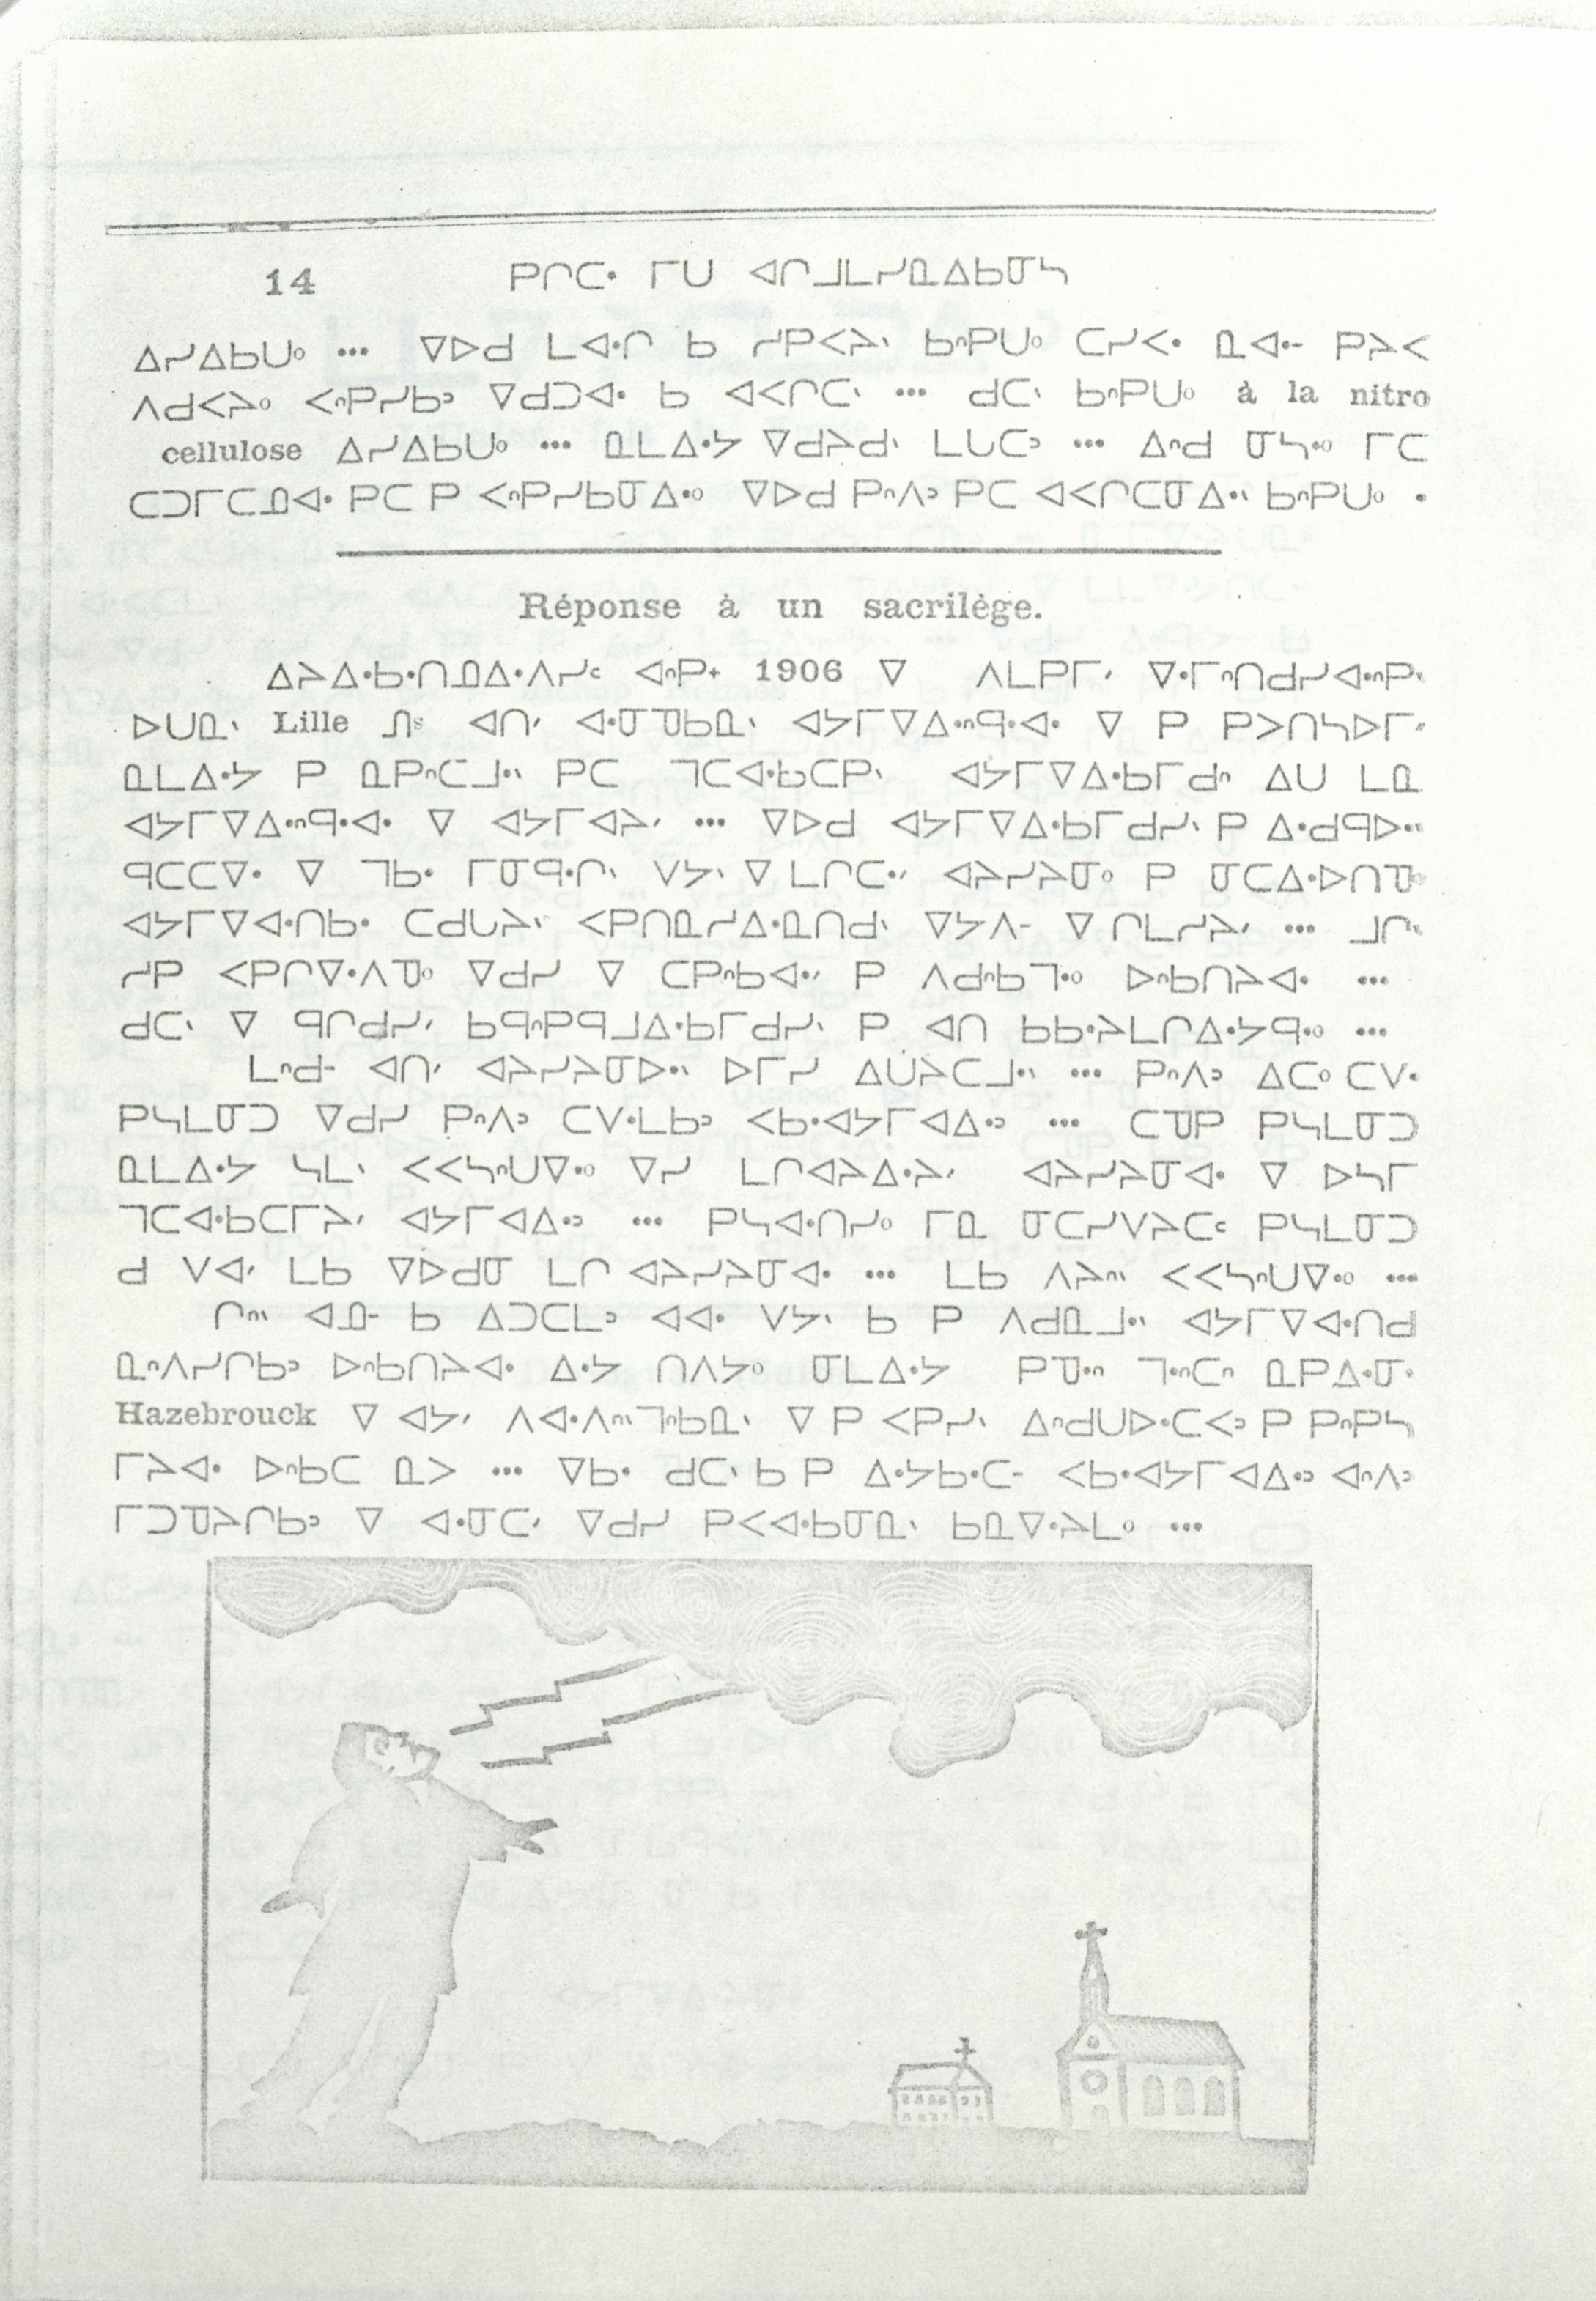 14 ᑭᒋᑕᐧ ᒥᑌ ᐊᒋᒧᒪᓯᓇᐃᑲᓂᓴ
ᐃᓯᐃᑲᑌᐤ ... ᐁᐅᑯ ᒪᐊᐧᒋ ᑲ ᓯᑭᐸᔨᐠ ᑲᐢᑭᑌᐤ ᑕᓯᐸᐧ ᓇᐊᐧᐨ ᑭᔨᐸ
ᐱᑯᐸᔨᐤ ᐸᐢᑭᓯᑲᐣ ᐁᑯᑐᐊᐧ ᑲ ᐊᐸᒋᑕᐠ ... ᑯᑕᐠ ᑲᐢᑭᑌᐤ à la nitro
cellulose ᐃᓯᐃᑲᑌᐤ ... ᓇᒪᐃᐧᔭ ᐁᑯᔨᑯᐠ ᒪᒐᑕᐣ ... ᐃᐢᑯ ᓂᓴᐧᐤ ᒥᑕ
ᑕᑐᒥᑕᓄᐊᐧ ᑭᑕ ᑭ ᐸᐢᑭᓯᑲᓂᐃᐧᐤ ᐁᐅᑯ ᑭᐢᐱᐣ ᑭᑕ ᐊᐸᒋᑕᓂᐃᐧᐠ ᑲᐢᑭᑌᐤ .
Réponse à un sacrilège.
ᐃᔨᐃᐧᑲᐧᑎᓄᐃᐧᐱᓯᑦ ᐊᐢᑭᐩ 1906 ᐁ ᐱᒪᑭᒥᐟ ᐁᐧᒥᐢᑎᑯᓯᐊᐧᐢᑭᐠ
ᐅᑌᓇᐠ Lille ᓚᐢ ᐊᑎᐟ ᐊᐧᓂᑫᑲᓇᐠ ᐊᔭᒥᐁᐃᐧᐢᑫᐧᐊᐧ ᐁ ᑭ ᑭᐳᑎᓴᐅᒥᐟ
ᓇᒪᐃᐧᔭ ᑭ ᓇᑭᐢᑕᒧᐧᐠ ᑭᑕ ᒣᑕᐊᐧᑲᑕᑭᐠ ᐊᔭᒥᐁᐃᐧᑲᒥᑯᐢ ᐃᑌ ᒪᓇ
ᐊᔭᒥᐁᐃᐧᐢᑫᐧᐊᐧ ᐁ ᐊᔭᒥᐊᔨᐟ ... ᐁᐅᑯ ᐊᔭᒥᐁᐃᐧᑲᒥᑯᓯᐠ ᑭ ᐃᐧᑯᑫᐅᐧᐠ
ᑫᑕᑕᐁᐧ ᐁ ᒣᑲᐧ ᒥᓂᑫᐧᒋᐠ ᐯᔭᐠ ᐁ ᒪᒋᑕᐧᐟ ᐊᔨᓯᔨᓂᐤ ᑭ ᓂᑕᐃᐧᐅᑎᓀᐤ
ᐊᔭᒥᐁᐊᐧᑎᑲᐧ ᑕᑯᒐᔨᐠ ᐸᑭᑎᓇᓯᐃᐧᓇᑎᑯᐠ ᐁᔭᐱᐨ ᐁ ᒋᒪᓯᔨᐟ ... ᒧᒋᐠ
ᓯᑭ ᐸᑭᒋᐁᐧᐱᓀᐤ ᐁᑯᓯ ᐁ ᑕᑭᐢᑲᐊᐧᐟ ᑭ ᐱᑯᐢᑲᒣᐧᐤ ᐅᐢᑲᑎᔨᐊᐧ ...
ᑯᑕᐠ ᐁ ᑫᒋᑯᓯᐟ ᑲᑫᐢᑭᑫᒧᐃᐧᑲᒥᑯᓯᐠ ᑭ ᐊᑎ ᑲᑲᐧᔨᒪᒋᐃᐧᔭᑫᐧᐤ ...
ᒪᐢᑯᐨ ᐊᑎᐟ ᐊᔨᓯᔨᓂᐅᐧᐠ ᐅᒥᓯ ᐃᑌᔨᑕᒧᐧᐠ ... ᑭᐢᐱᐣ ᐃᑕᐤ ᑕᐯᐧ
ᑭᓴᒪᓂᑐ ᐁᑯᓯ ᑭᐢᐱᐣ ᑕᐯᐧᒪᑲᐣ ᐸᑲᐧᐊᔭᒥᐊᐃᐧᐣ ... ᑕᓀᑭ ᑭᓴᒪᓂᑐ
ᓇᒪᐃᐧᔭ ᓴᒪᐠ ᐸᐸᓴᐢᑌᐁᐧᐤ ᐁᓯ ᒪᒋᐊᔨᐃᐧᔨᐟ ᐊᔨᓯᔨᓂᐊᐧ ᐁ ᐅᓴᒥ
ᒣᑕᐊᐧᑲᑕᒥᔨᐟ ᐊᔭᒥᐊᐃᐧᐣ ... ᑭᓴᐊᐧᑎᓯᐤ ᒥᓇ ᓂᑕᓯᐯᔨᑕᑦ ᑭᓴᒪᓂᑐ
ᑯ ᐯᐊᐟ ᒪᑲ ᐁᐅᑯᓂ ᒪᒋ ᐊᔨᓯᔨᓂᐊᐧ ... ᒪᑲ ᐱᔨᐢᐠ ᐸᐸᓴᐢᑌᐁᐧᐤ ...
ᒋᐢᐠ ᐊᓄᐨ ᑲ ᐃᑐᑕᒪᐣ ᐊᐊᐧ ᐯᔭᐠ ᑲ ᑭ ᐱᑯᓇᒧᐧᐠ ᐊᔭᒥᐁᐊᐧᑎᑯ
ᓇᐢᐱᓯᒋᑲᐣ ᐅᐢᑲᑎᔨᐊᐧ ᐃᐧᔭ ᑎᐱᔭᐤ ᓂᒪᐃᐧᔭ ᑭᓀᐧᐢ ᒣᐧᐢᑕᐢ ᓇᑭᐃᐧᓂᐧ
Hazebrouck ᐁ ᐊᔭᐟ ᐱᐊᐧᐱᐢᐠᒣᐢᑲᓇᐠ ᐁ ᑭ ᐸᑭᓯᐠ ᐃᐢᑯᑌᐅᐧᑕᐸᐣ ᑭ ᑭᐢᑭᓴ
ᒥᔨᐊᐧ ᐅᐢᑲᑕ ᓇᐳ ... ᐁᑲᐧ ᑯᑕᐠ ᑲ ᑭ ᐃᐧᔭᑲᐧᑕᐨ ᐸᑲᐧᐊᔭᒥᐊᐃᐧᐣ ᐊᐢᐱᐣ
ᒥᑐᓀᔨᒋᑲᐣ ᐁ ᐊᐧᓂᑕᐟ ᐁᑯᓯ ᑭᐸᐊᐧᑲᓂᓇᐠ ᑲᓇᐁᐧᔨᒪᐤ ...